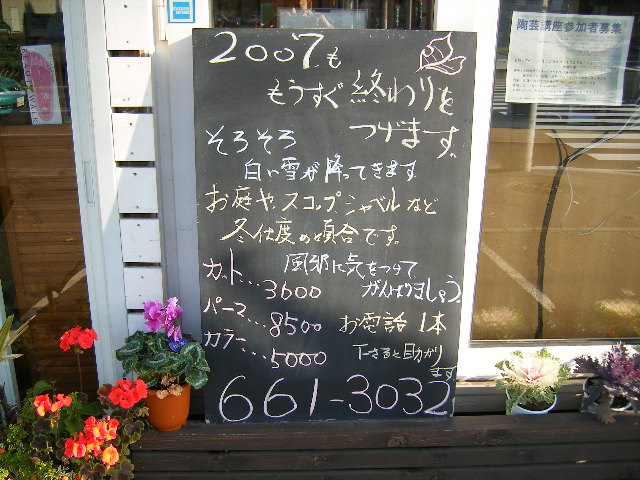 陶芸講座参加者募集
2007も
もうすぐ終わりを
つげます。
そろそろ
白い雪が降ってきます
お庭や スコップ シャベル など
冬仕度の頃合です。
風邪に気をつけて
がんばりましょう。
カット...3600
パーマ...8500
カラー...5000
お電話 1本
下さると助かり
ます
661-3032